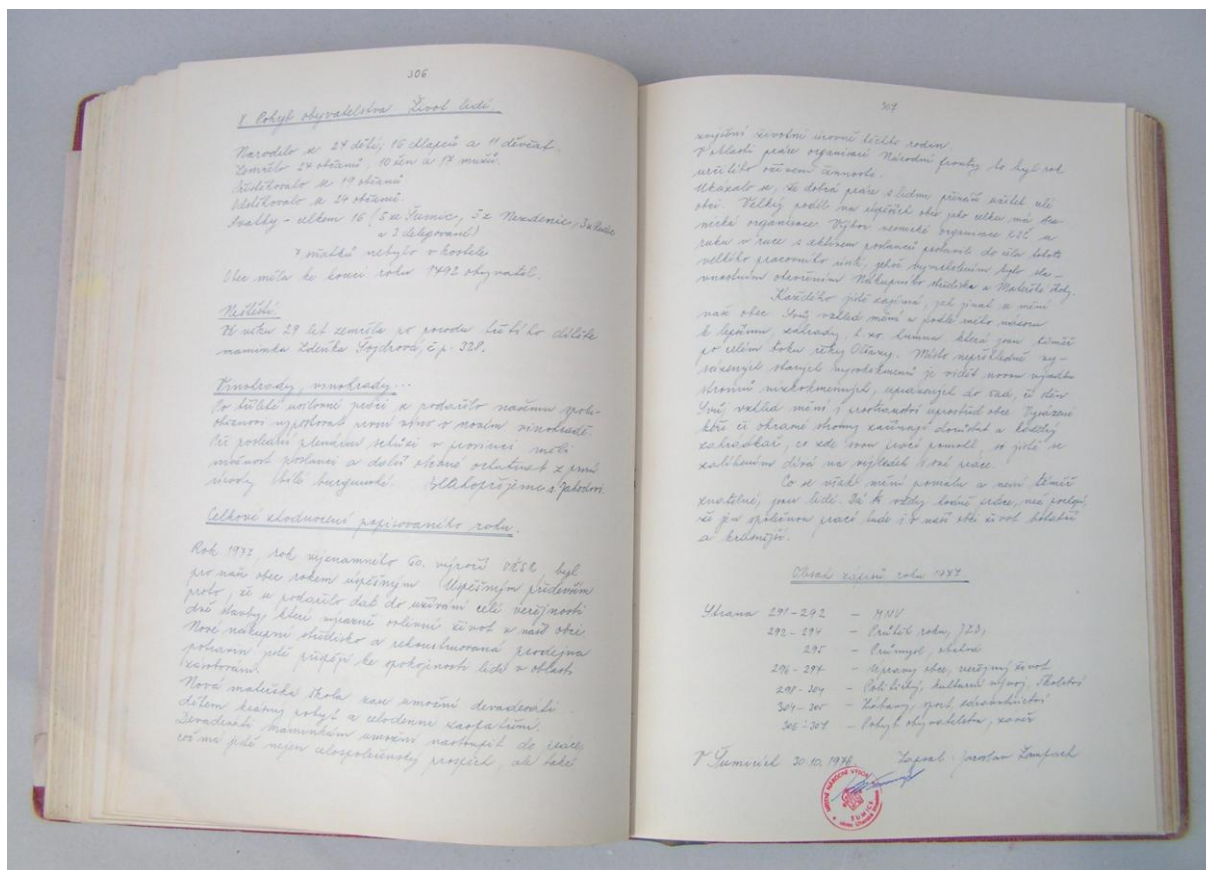 306
8. Pohyb obyvatelstva. Život lidí.
Narodilo se 27 dětí, 16 chlapců a 11 děvčat.
Zemřelo 27 občanů, 10 žen a 17 mužů.
Přistěhovalo se 19 občanů
Odstěhovalo se 24 občanů.
Svatby - celkem 16 (5 ze Šumic, 5 z Nezdenic, 3 z
a 3 delegované)
sňatků nebylo v kostele
Obec měla ke konci roku 1792 obyvatel.
Neštěstí.
Ve věku 29 let zemřela po porodu třetího dítěte
maminka Zdeňka Šojdrová, č.p. 328.
Vinohrady, vinohrady...
Po tříleté usilovné práci se podařilo našemu
vypěstovat první víno v novém vinohradě.
Při poslední plenárním schůzi v prosinci měli
možnost poslanci a další občané ochutnat z první
úrody bílé burgundské. Blahopřejeme s
Celkové zhodnocení popisovaného roku.
Rok 1977, rok významného 60. výročí VŘSR byl
pro naši obec rokem úspěšným. Úspěšným především
proto, že se podařilo dát do užívání celé veřejnosti
dvě stavby, které výrazně ovlivní život v naší obci.
Nové nákupní středisko a rekonstruovaná prodejna
potravin jistě přispějí ke spokojenosti lidí v oblasti
zásobování.
Nová mateřská škola zase umožní devadesáti
dětem krásný pobyt a celodenní zaopatření.
Devadesáti maminkám umožní nastoupit do práce,
což má jistě nejen celospolečenský prospěch, ale také
307
zvýšení životní úrovně těchto rodin.
V oblasti práce organizací Národní fronty to byl rok
určitého oživení činnosti.
Ukázalo se, že dobrá práce s lidmi přináší užitek celé
obci. Velký podíl na úspěších obce jako celku má
nická organizace. Výbor vesnické organizace KSČ se
ruku v ruce s aktivem poslanců postavili do čela tohoto
velkého pracovního úsilí, jehož vyvrcholením bylo sla-
vnostním otevřením Nákupního střediska a Mateřské školy.
Každého jistě zajímá, jak jinak se mění
naše obec. Svůj vzhled mění a podle mého názoru
k lepšímu, zahrady, t. zv. humna, která jsou téměř
po celém toku říčky Olšavy. Místo nepřehledně vy-
sázených starých vysokokmenů je vidět novou výsadbu
stromů nízkokmenných, upravených do sadů, či stěn
Svůj vzhled mění i prostranství uprostřed obce. Vysázené
keře či okrasné stromy začínají dorůstat a každý
zahrádkář, co zde svou prací pomohl, se jistě se
zalíbením dívá na výsledek své práce.
Co se však mění pomalu a není téměř
znatelné, jsou lidé. Dá to vždy hodně práce, než pochopí,
že jen společnou prací bude i v naší obci život bohatší
a krásnější.
Obsah zápisů roku 1977
Strana 291-292 - MNV
292-294 - Průběh roku, JZD,
295 - Průmysl, obchod
296-297 - Úpravy obce, veřejný život
298-304 - Politický, kulturní vývoj, školství
304-305 - Zábavy, sport, zdravotnictví
306-307 - Pohyb obyvatelstva, závěr
V Šumicích 30.10.1978 Zapsal: Jaroslav
MÍSTNÍ NÁRODNÍ VÝBOR
ŠUMICE
okres Uherské Hradiště